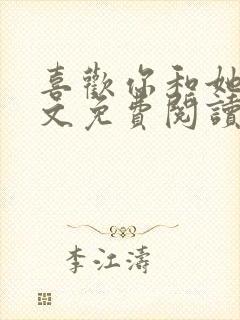 喜歡你和她
文免費閱讀
李江濤